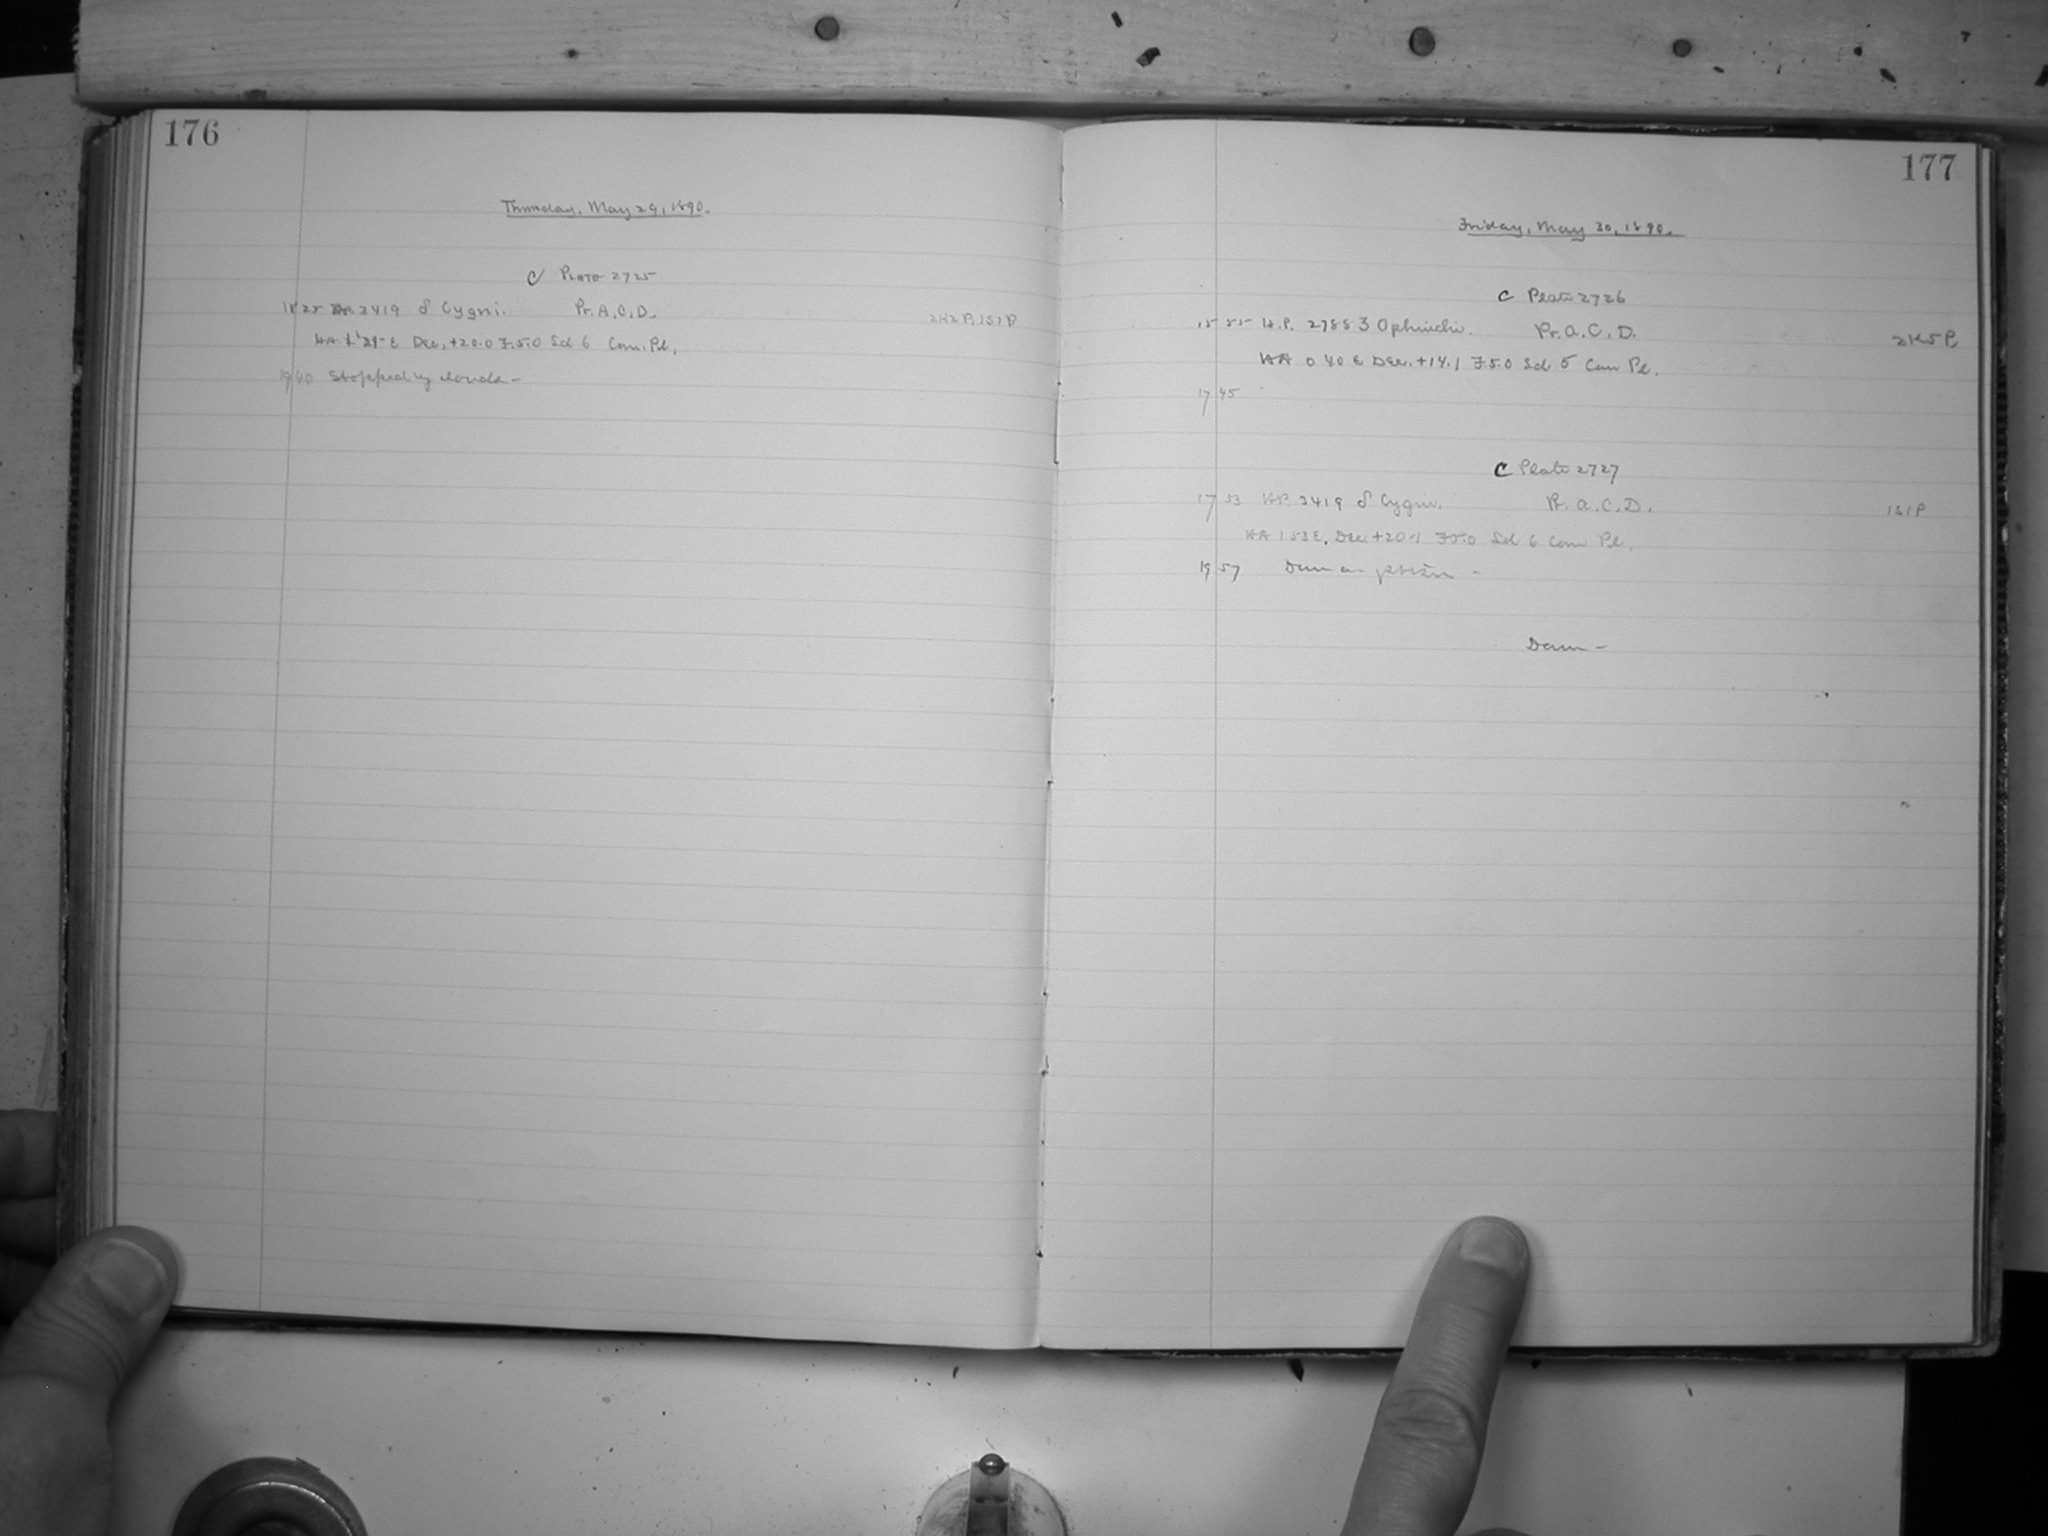 176
Thursday, May 29, 1890.
C Plate 2725
18 25 H.P. 3419 δ Cygni. Pr. A.C.D. 2K2P, 1S1P
HA 1 29 E Dec. +20.0 F.5.0 Sd 6 Com. Pl.
19 40 Stopped by clouds -
177
Friday, May 30, 1890.
C Plate 2726
15 55 H.P. 2788 3 Ophiuchi. Pr. A.C.D. 2K5P,
HA 0 40 E Dec. +14.1 F5.0 Sd 5 Com Pl.
17 45
C Plate 2727
17 53 H.P. 3419 δ Cygni. Pr. A.C.D. 1S1P
HA 1 53 E, Dec. +20.1 F5.0 Sd 6 Com Pl.
19 57 Dawn
Dawn -